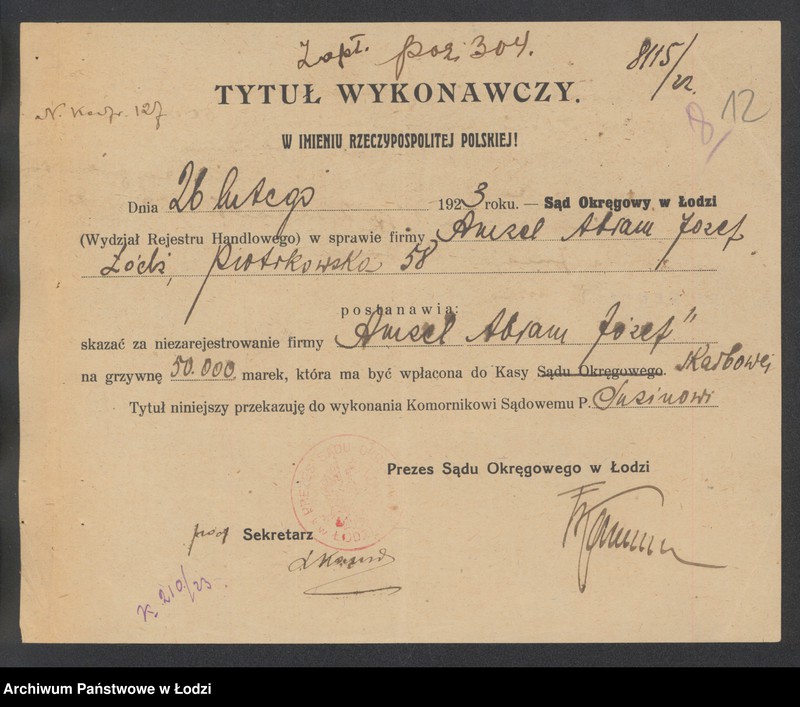 Zapł. poz. 304.
8115/22.
TYTUŁ WYKONAWCZY.
8 12
W IMIENIU RZECZYPOSPOLITEJ POLSKIEJ!
Dnia 26 lutego 1923 roku. — Sąd Okręgowy w Łodzi
(Wydział Rejestru Handlowego) w sprawie firmy „Amzel Abram Józef
Łódź, Piotrkowska 58
postanawia:
skazać za niezarejestrowanie firmy „Amzel Abram Józef"
na grzywnę 50.000 marek, która ma być wpłacona do Kasy Sądu Okręgowego. Skarbowej
Tytuł niniejszy przekazuję do wykonania Komornikowi Sądowemu P. Suzinowi
Prezes Sądu Okręgowego w Łodzi
Sekretarz
K 210/23.
Archiwum Państwowe w Łodzi